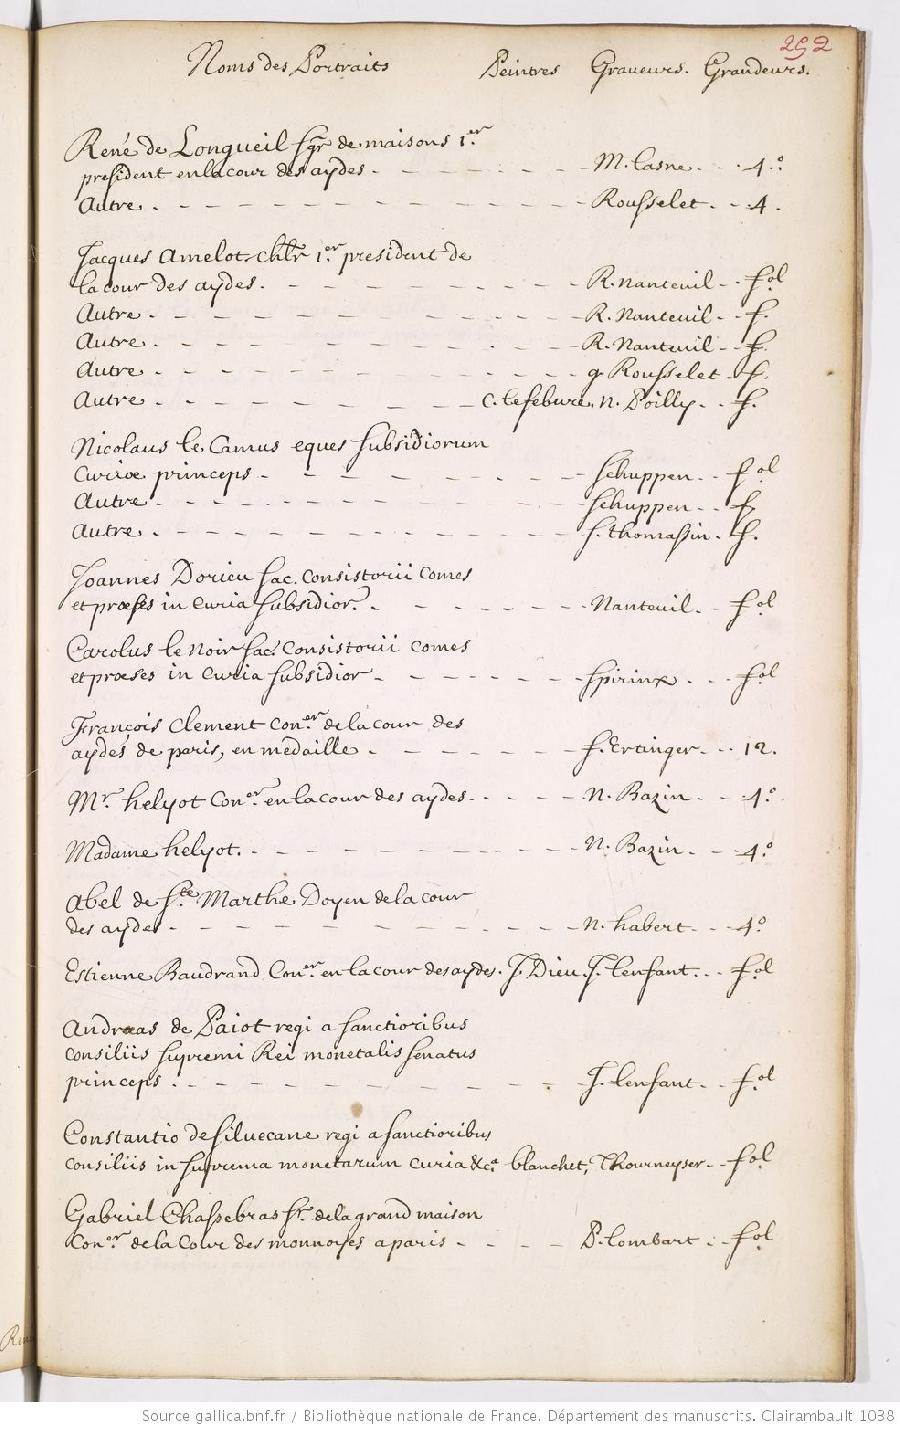 252
Noms des Portraits Peintres Graveurs. Grandeurs.
René de Longueil sgr de maisons 1.er
president en la cour des aydes. - - - - - - M. lasne. - - 4.o
Autre. - - - - - - - - - - Rousselet. - - 4.
Jacques Amelot chlr 1.er president de
la cour des aydes. - - - - - - - R. Nanteuil - - fol
Autre. - - - - - - - - - - R. Nanteuil - - f.
Autre. - - - - - - - - - - R. Nanteuil - - f.
Autre. - - - - - - - - - - g Rousselet - f.
Autre. - - - - - - - - c. lefebure. n. Poilly. - - f.
Nicolaus le Camus eques subsidiorum
Curiæ princeps. - - - - - - - Schuppen. - - fol
Autre. - - - - - - - - - - Schuppen. - - f.
Autre. - - - - - - - - - - S. thomassin. - f.
Joannes Dorieu sac. Consistorii comes
et præses in curia subsidior. - - - - - Nanteuil. - fol
Carolus le Noir sac. Consistorii comes
et præses in curia subsidior - - - - - Spirinx. - - fol
François Clement Con.er de la cour des
aydes de paris, en medaille - - - - - f. Ertinger. - - 12.
Mr. helyot Con.er en la cour des aydes. - - - N. Bazin - - 4.o
Madame helyot. - - - - - - - - N. Bazin. - - 4.o
Abel de Ste. Marthe Doyen de la cour
des aydes - - - - - - - - - n. habert. - - 4.o
Estienne Baudrand Con.er en la cour des aydes. J. Dieu. J. lenfant. - - fol
Andreas de Paiot regi a sanctioribus
consiliis supremi Rei monetalis senatus
princeps. - - - - - - - - - J. lenfant. - - fol
Constantio de Siluecane regi a sanctioribus
consiliis in suprema monetarum curia &ca. blanchet, Thourneyser. - - fol
Gabriel Chassebras sr. de la grand maison
Con.er de la Cour des monnoyes a paris - - - - P. lombart - - fol
Source gallica.bnf.fr / Bibliothèque nationale de France. Département des manuscrits. Clairambault 1038